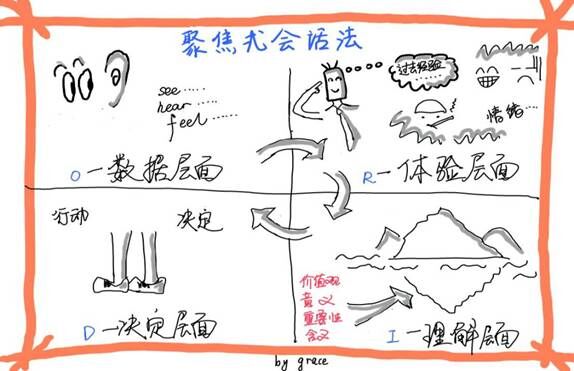 聚焦式会话法
see ......
hear ......
feel ......
O—数据层面
过去经验
......
情绪...
R—体验层面
行动
决定
D—决定层面
价值观
意义
重要性
含义
I—理解层面
by grace